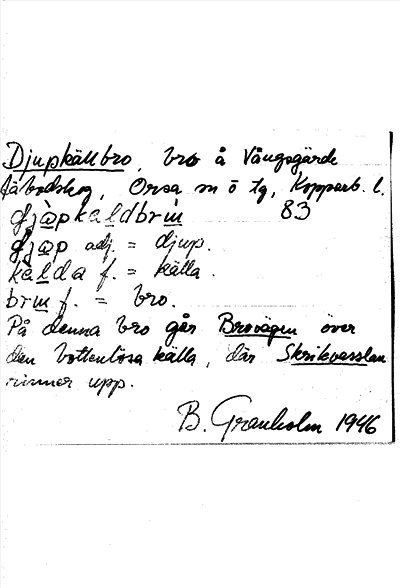 Djupkällbro, bro å Vångsgärde
fäbodskog, Orsa sn o tg, Kopparb. l.
83
djɷpkäldbrɯ
djɷp adj. = djup.
källda f. = källa.
brɯ f. = bro.
På denna bro går Brovägen över
den bottenlösa källa, där Skrikvasslan
rinner upp.
B. Granholm 1946